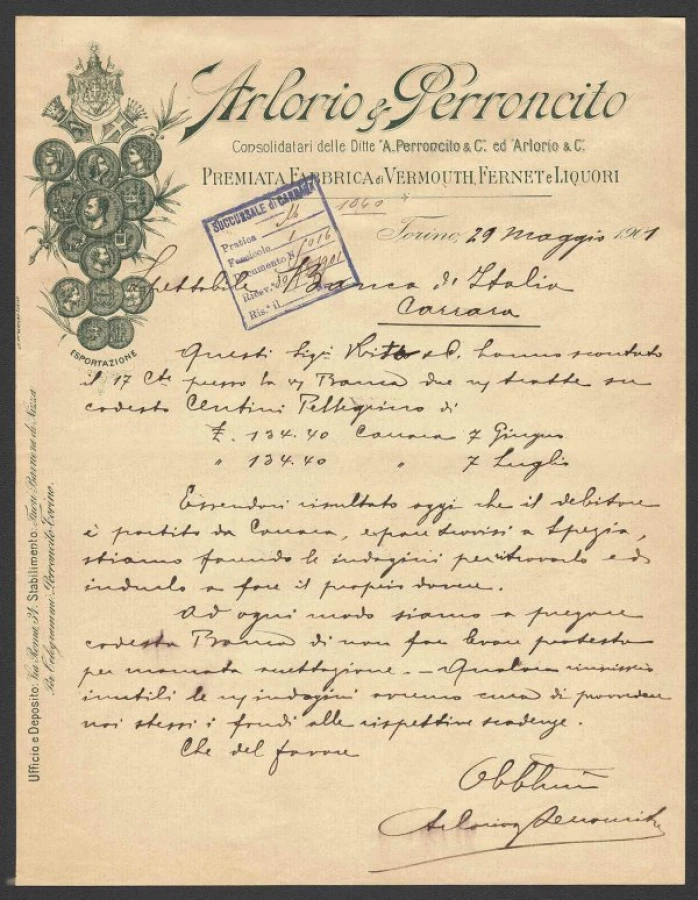 Arlorio & Perroncito
Consolidatari delle Ditte "A. Perroncito & C. ed Arlorio & C.
PREMIATA FABBRICA di VERMOUTH, FERNET e LIQUORI
1060
SUCCURSALE di CARRARA
Pratica 16
Fascicolo 1
Documento N. 1016
Ricev. 30 1901
Ris. il
Torino, 29 Maggio 1901
Spettabile Banca d'Italia
Carrara
ESPORTAZIONE
Questi Sigi & C. hanno scontato
il 17 Cte presso la v/ Banca due n/ tratte su
codesto Centini Pellegrino di
£. 134.40 Carrara 7 Giugno
" 134.40 " 7 Luglio
Essendoci risultato oggi che il debitore
è partito da Carrara, e pare trovisi a Spezia,
stiamo facendo le indagini per ritrovarlo e di
indurlo a fare il proprio dovere.
Ad ogni modo siamo a pregare
codesta Banca di non far levare protesto
per mancata accettazione. - Qualora
inutili le n/ indagini avremo cura di provvedere
noi stessi i fondi alle rispettive scadenze.
Che del favore
Obblmi
Arlorio & Perroncito
Ufficio e Deposito: Via Roma, 31. Stabilimento: Fuori Barriera di Nizza
Per Telegrammi: Perroncito-Torino.